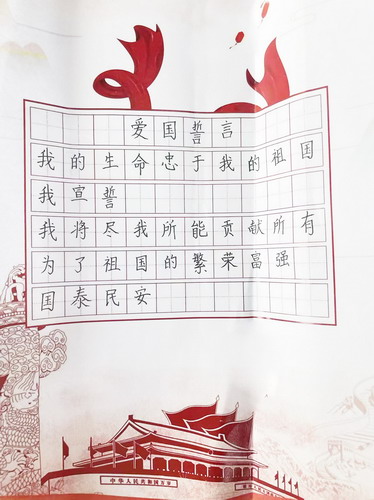 爱国誓言
我的生命忠于我的祖国
我宣誓
我将尽我所能贡献所有
为了祖国的繁荣富强
国泰民安
中华人民共和国万岁